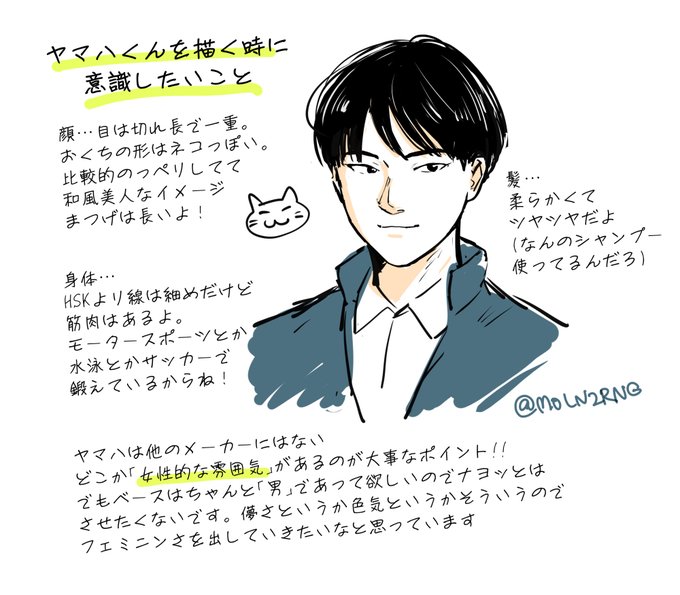 ヤマハくんを描く時に
意識したいこと
顔…目は切れ長で一重。
おくちの形はネコっぽい。
比較的のっぺりしてて
和風美人なイメージ
まつげは長いよ！
髪…
柔らかくて
ツヤツヤだよ
(なんのシャンプー
使ってるんだろ)
身体…
HSKより線は細めだけど
筋肉はあるよ。
モータースポーツとか
水泳とかサッカーで
鍛えているからね！
@MOLN2RNG
ヤマハは他のメーカーにはない
どこか「女性的な雰囲気」があるのが大事なポイント!!
でもベースはちゃんと「男」であって欲しいのでナヨッとは
させたくないです。儚さというか色気というかそういうので
フェミニンさを出していきたいなと思っています